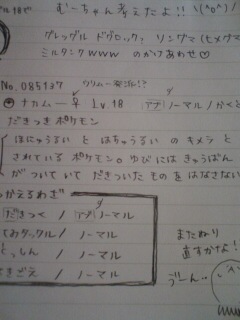 むーちゃん考えたよ!! \(^o^)/
グレッグル ドグロッグ、リングマ(ヒメグマ
ミルタンクwww のかけあわせ♡
No. 085137
ナカムー ♀ Lv 18
ノーマル/かくと
だきつきポケモン
ほにゅうるい と はちゅうるい の キメラ と
されている ポケモン。ゆびには きゅうばん
が ついていて だきついた ものを はなさない
つかえるわざ
だきつく / ノーマル
てみタックル / ノーマル
とっしん / ノーマル
ノーマル
またねり
直すかな!
うーん..